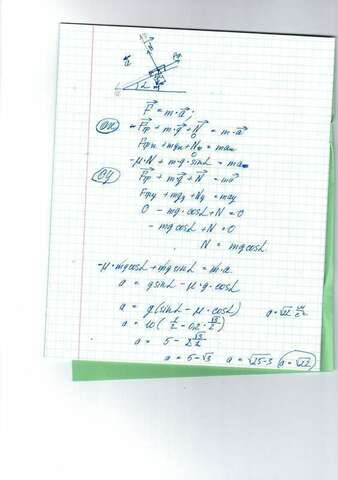 F⃗ = m·a⃗;
OX F⃗тр + m·g⃗ + N⃗ = m·a⃗
0
Fтрx + mgx + Nx = max
0
-μ·N + m·g·sinα = ma
OY F⃗тр + m·g⃗ + N⃗ = ma⃗
Fтрy + mgy + Ny = may
0 - mg·cosα + N = 0
- mg·cosα + N = 0
N = mgcosα
-μ·mgcosα + mgsinα = m·a
a = gsinα - μ·g·cosα
a = g(sinα - μ·cosα)
a = 10(1/2 - 0,2·√3/2)
a = √22 м/с²
a = 5 - 2√3/2
a = 5 - √3 a = √25-3 a = √22